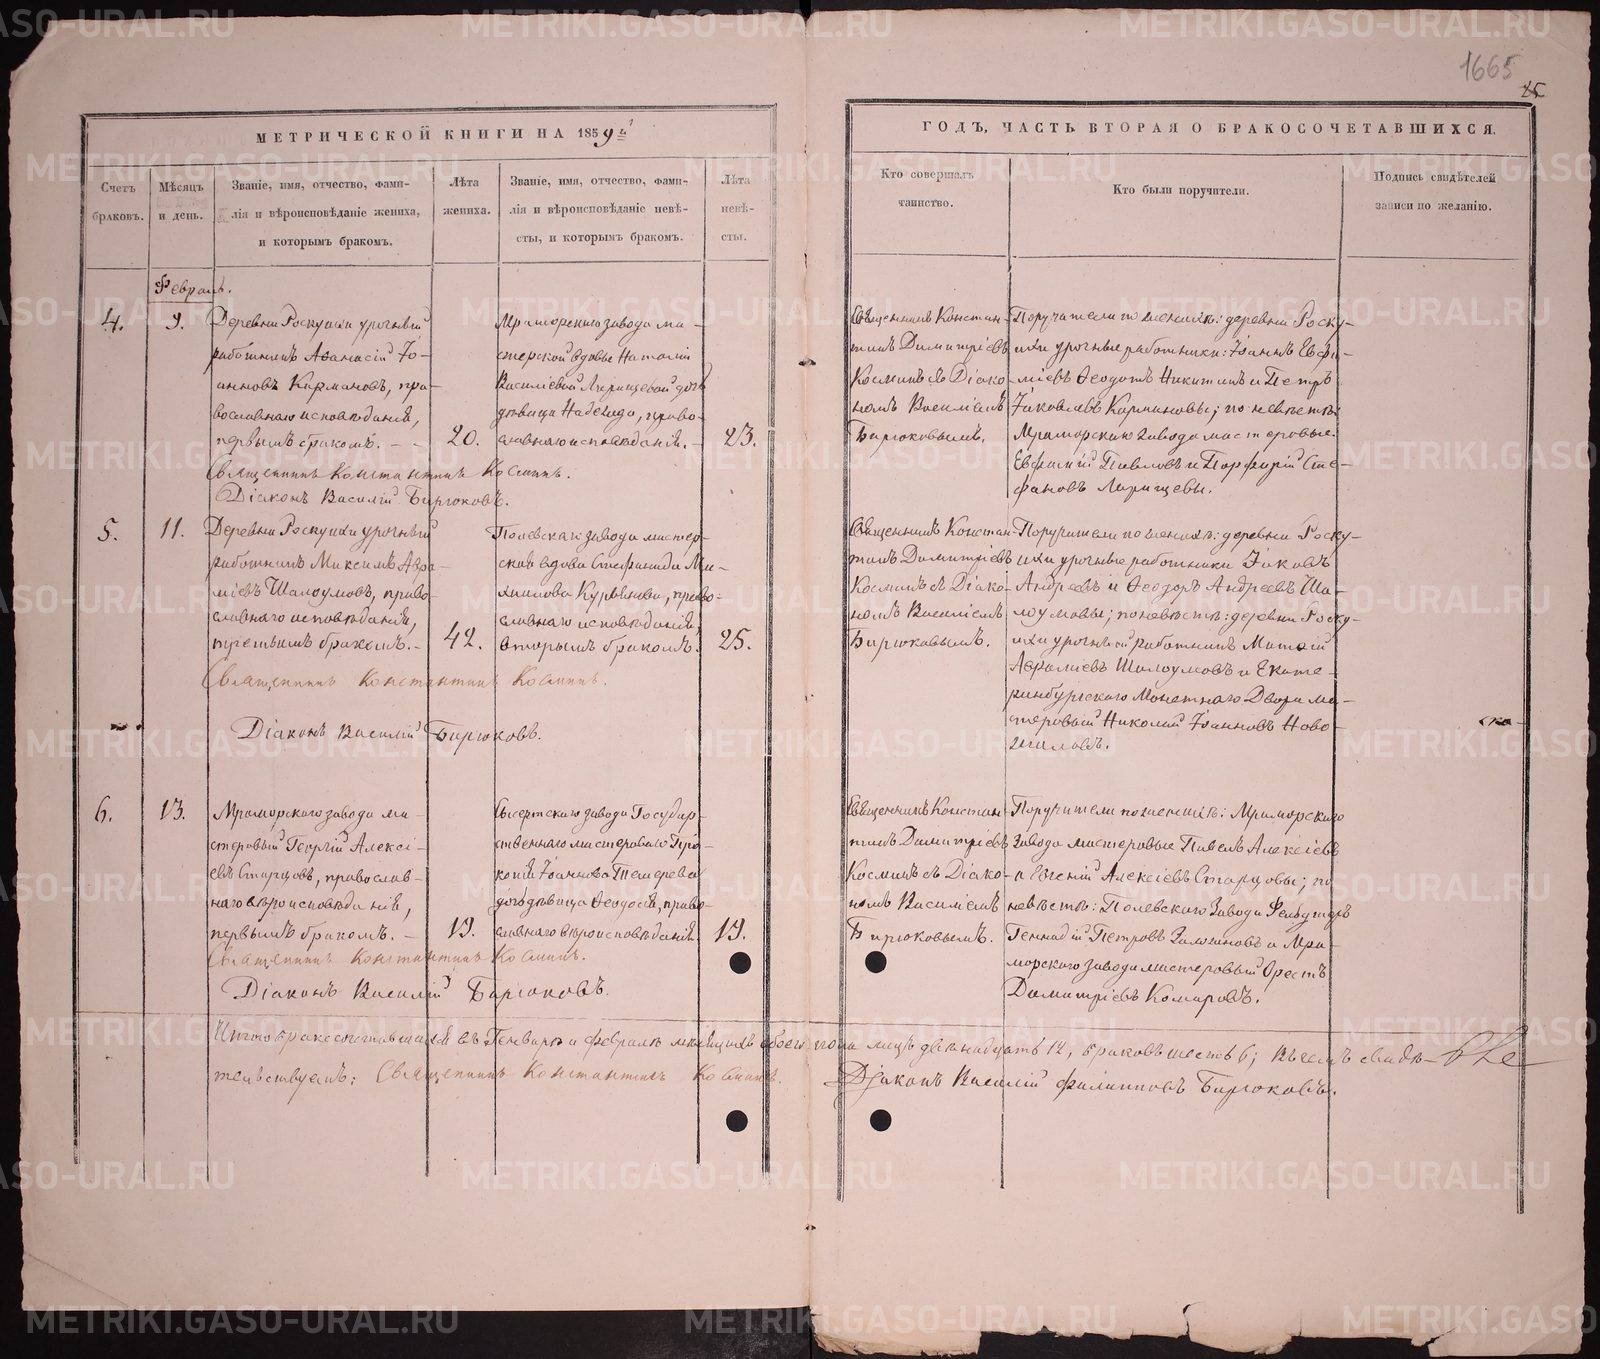 1665
25
МЕТРИЧЕСКОЙ КНИГИ НА 1859й
ГОДЪ, ЧАСТЬ ВТОРАЯ О БРАКОСОЧЕТАВШИХСЯ.
Счетъ
браковъ.
Мѣсяцъ
и день.
Званіе, имя, отчество, фами-
лія и вѣроисповѣданіе жениха,
и которымъ бракомъ.
Лѣта
жениха.
Званіе, имя, отчество, фами-
лія и вѣроисповѣданіе невѣ-
сты, и которымъ бракомъ.
Лѣта
невѣ-
сты.
Кто совершалъ
таинство.
Кто были поручители.
Подпись свидѣтелей
записи по желанію.
Февраль.
4.
9.
Деревни Роскуихи урочный
работникъ Аѳанасій Іо-
анновъ Кармановъ, пра-
вославнаго исповѣданія,
первымъ бракомъ. - -
20.
Мраморскаго завода ма-
стерской вдовы Наталіи
Василіевой Ларищевой дочь
дѣвица Надежда, право-
славнаго исповѣданія. -
23.
Священникъ Констан-
тинъ Димитріевъ
Косминъ съ Діако-
номъ Василіемъ
Бирюковымъ.
Поручители по женихѣ: деревни Роску-
ихи урочные работники: Іоаннъ Евфи-
міевъ Ѳеодотъ Никитинъ и Петръ
Іаковлевъ Кармановы; по невѣстѣ:
Мраморскаго завода мастеровые.
Евфимій Павловъ и Порфирій Сте-
фановъ Ларищевы.
Священникъ Константинъ Косминъ.
Діаконъ Василій Бирюковъ.
5.
11.
Деревни Роскуихи урочный
работникъ Максимъ Авра-
міевъ Шалоумовъ, право-
славнаго исповѣданія,
третьимъ бракомъ. -
42.
Полевскаго завода мастер-
ская вдова Стефанида Ми-
хаилова, право-
славнаго исповѣданія,
вторымъ бракомъ.
25.
Священникъ Констан-
тинъ Димитріевъ
Косминъ съ Діако-
номъ Василіемъ
Бирюковымъ.
Поручители по женихѣ: деревни Роску-
ихи урочные работники Іаковъ
Андреевъ и Ѳеодоръ Андреевъ Ша-
лоумовы; по невѣстѣ: деревни Роску-
ихи урочный работникъ Матѳій
Авраміевъ Шалоумовъ и Екате-
ринбургскаго Монетнаго Двора ма-
стеровый Николай Іоанновъ Ново-
Священникъ Константинъ Косминъ.
Діаконъ Василій Бирюковъ.
6.
13.
Мраморскаго завода ма-
стеровый Георгій Алексі-
евъ Старцовъ, православ-
наго вѣроисповѣданія,
первымъ бракомъ. -
19.
Сысертскаго завода Государ-
ственнаго мастероваго Про-
копія Іоаннова Темерева
дочь дѣвица Ѳеодосія, право-
славнаго вѣроисповѣданія.
19.
Священникъ Констан-
тинъ Димитріевъ
Косминъ съ Діако-
номъ Василіемъ
Бирюковымъ.
Поручители по женихѣ: Мраморскаго
завода мастеровые Павелъ Алексіевъ
и Евгеній Алексіевъ Старцовы; по
невѣстѣ: Полевскаго завода
Геннадій Петровъ и Мра-
морскаго завода мастеровый Орестъ
Димитріевъ Комаровъ.
Священникъ Константинъ Косминъ.
Діаконъ Василій Бирюковъ.
Итого бракосочетавшихся въ Генварѣ и февралѣ мѣсяцахъ обоего пола лицъ двѣнадцать 12, браковъ шесть 6; въ чемъ свидѣ-
тельствуемъ: Священникъ Константинъ Косминъ. Діаконъ Василій Филипповъ Бирюковъ.
METRIKI.GASO-URAL.RU